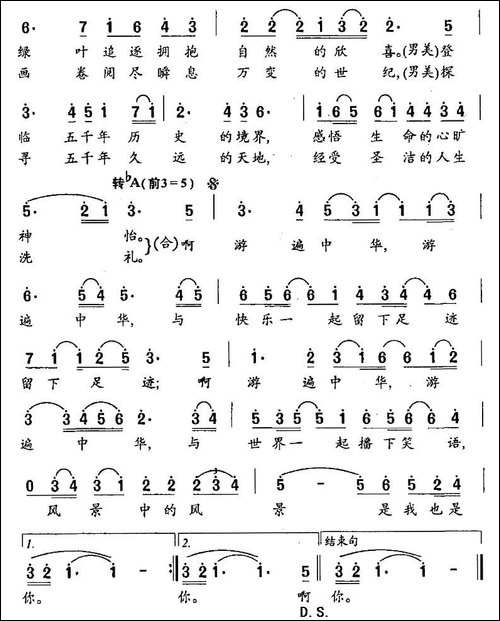 6· 7 1 6 4 3 | 2 2 2 1 3 2 2· 5 |
绿 叶 追 逐 拥 抱 自 然 的 欣 喜。(男美)登
画 卷 阅 尽 瞬 息 万 变 的 世 纪,(男美)探
3· 4 5 1 7 1 | 2· 4 3 6· | 1 6 5 6 1 4 4 3 4 |
临 五千年 历 史 的境界, 感悟 生 命的心旷
寻 五千年 久 远 的天地, 经受 圣 洁的人生
转♭A(前3=5)
5· 2 1 3· 5 | 3· 4 5 3 1 1 1 3 |
神 怡。
洗 礼。}(合)啊 游 遍 中 华, 游
6· 5 4 5· 4 5 | 6 5 6 6 1 4 3 4 4 6 |
遍 中 华, 与 快 乐 一 起 留 下 足 迹
7 1 1 2 5 3· 5 | 1· 2 3 1 6 6 1 2 |
留 下 足 迹; 啊 游 遍 中 华, 游
3 3 4 5 6 2· 3 4 | 5 3 5 5 1 6 5 6 6 4 |
遍 中 华, 与 世 界 一 起 播 下 笑 语,
0 3 4 3 1 2 2 2 3 4 | 5 - 5 6 5 2 4 |
风 景 中 的 风 景 是 我 也 是
1. 2. 结束句
3 2 1· 1 - :‖ 3 2 1· 1· 5 ‖ 3 2 1· 1 - ‖
你。 你。 啊 你。
D.S.